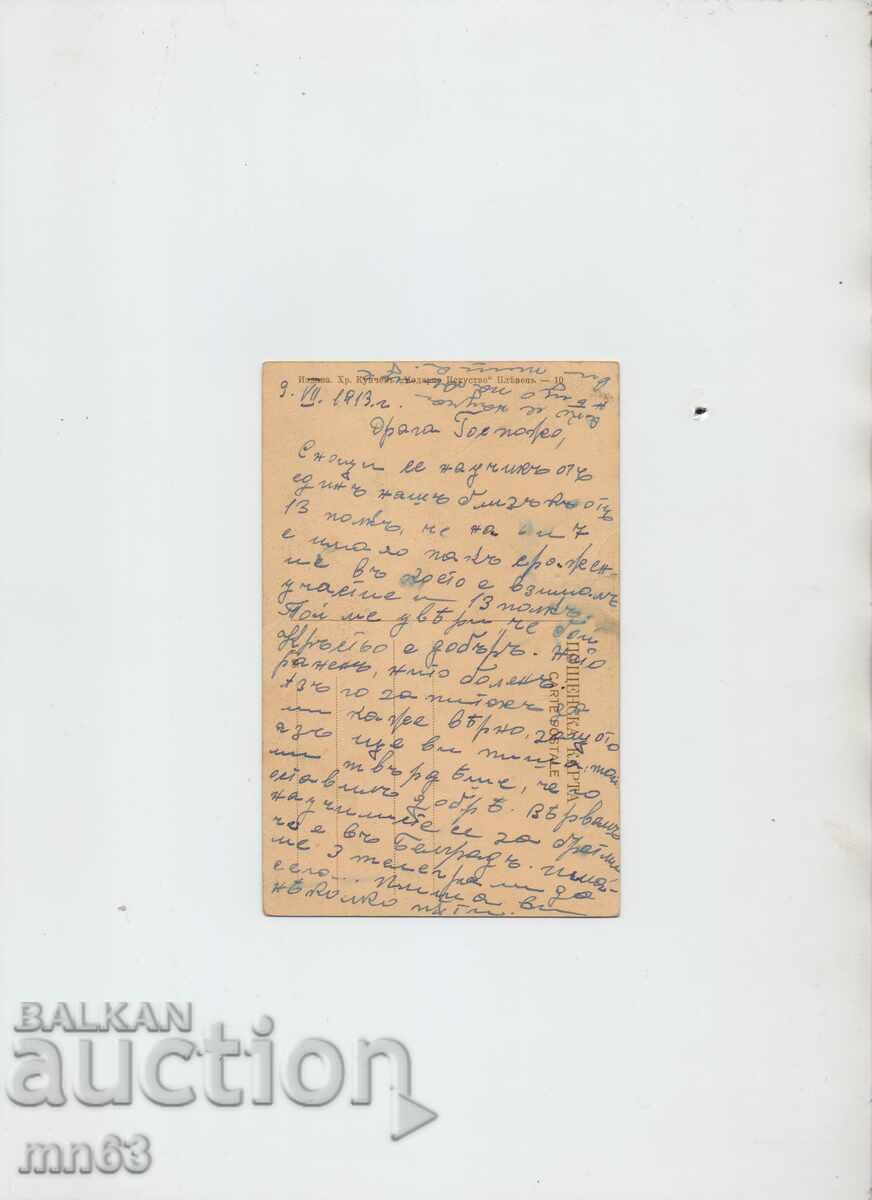 Издава Хр. Кънчевъ Искуство" Плѣвенъ — 10
9. VII. 1913 г.
Драга Госпожо,
Снощи се научихъ отъ
единъ нашъ близъкъ отъ
13 полкъ, че на и 7
е имало пакъ сражен-
ие въ което е взималъ
участие и 13 полкъ.
Той ме увѣри че бай
Кръстьо е добъръ. Нито
раненъ, нито боленъ.
Азъ го запитахъ да
ми каже вѣрно, защото
азъ ще ви пиша, той
ми твърдѣше, че го
оставилъ добрѣ. Вѣрвамъ
научихте се за братъ ми
че е въ Бѣлградъ. Има-
ме 3 телеграми до
сега... Пиша ви
нѣколко пѫти.
ПОЩЕНСКА КАРТА
CARTE POSTALE
BALKAN
auction
mn63